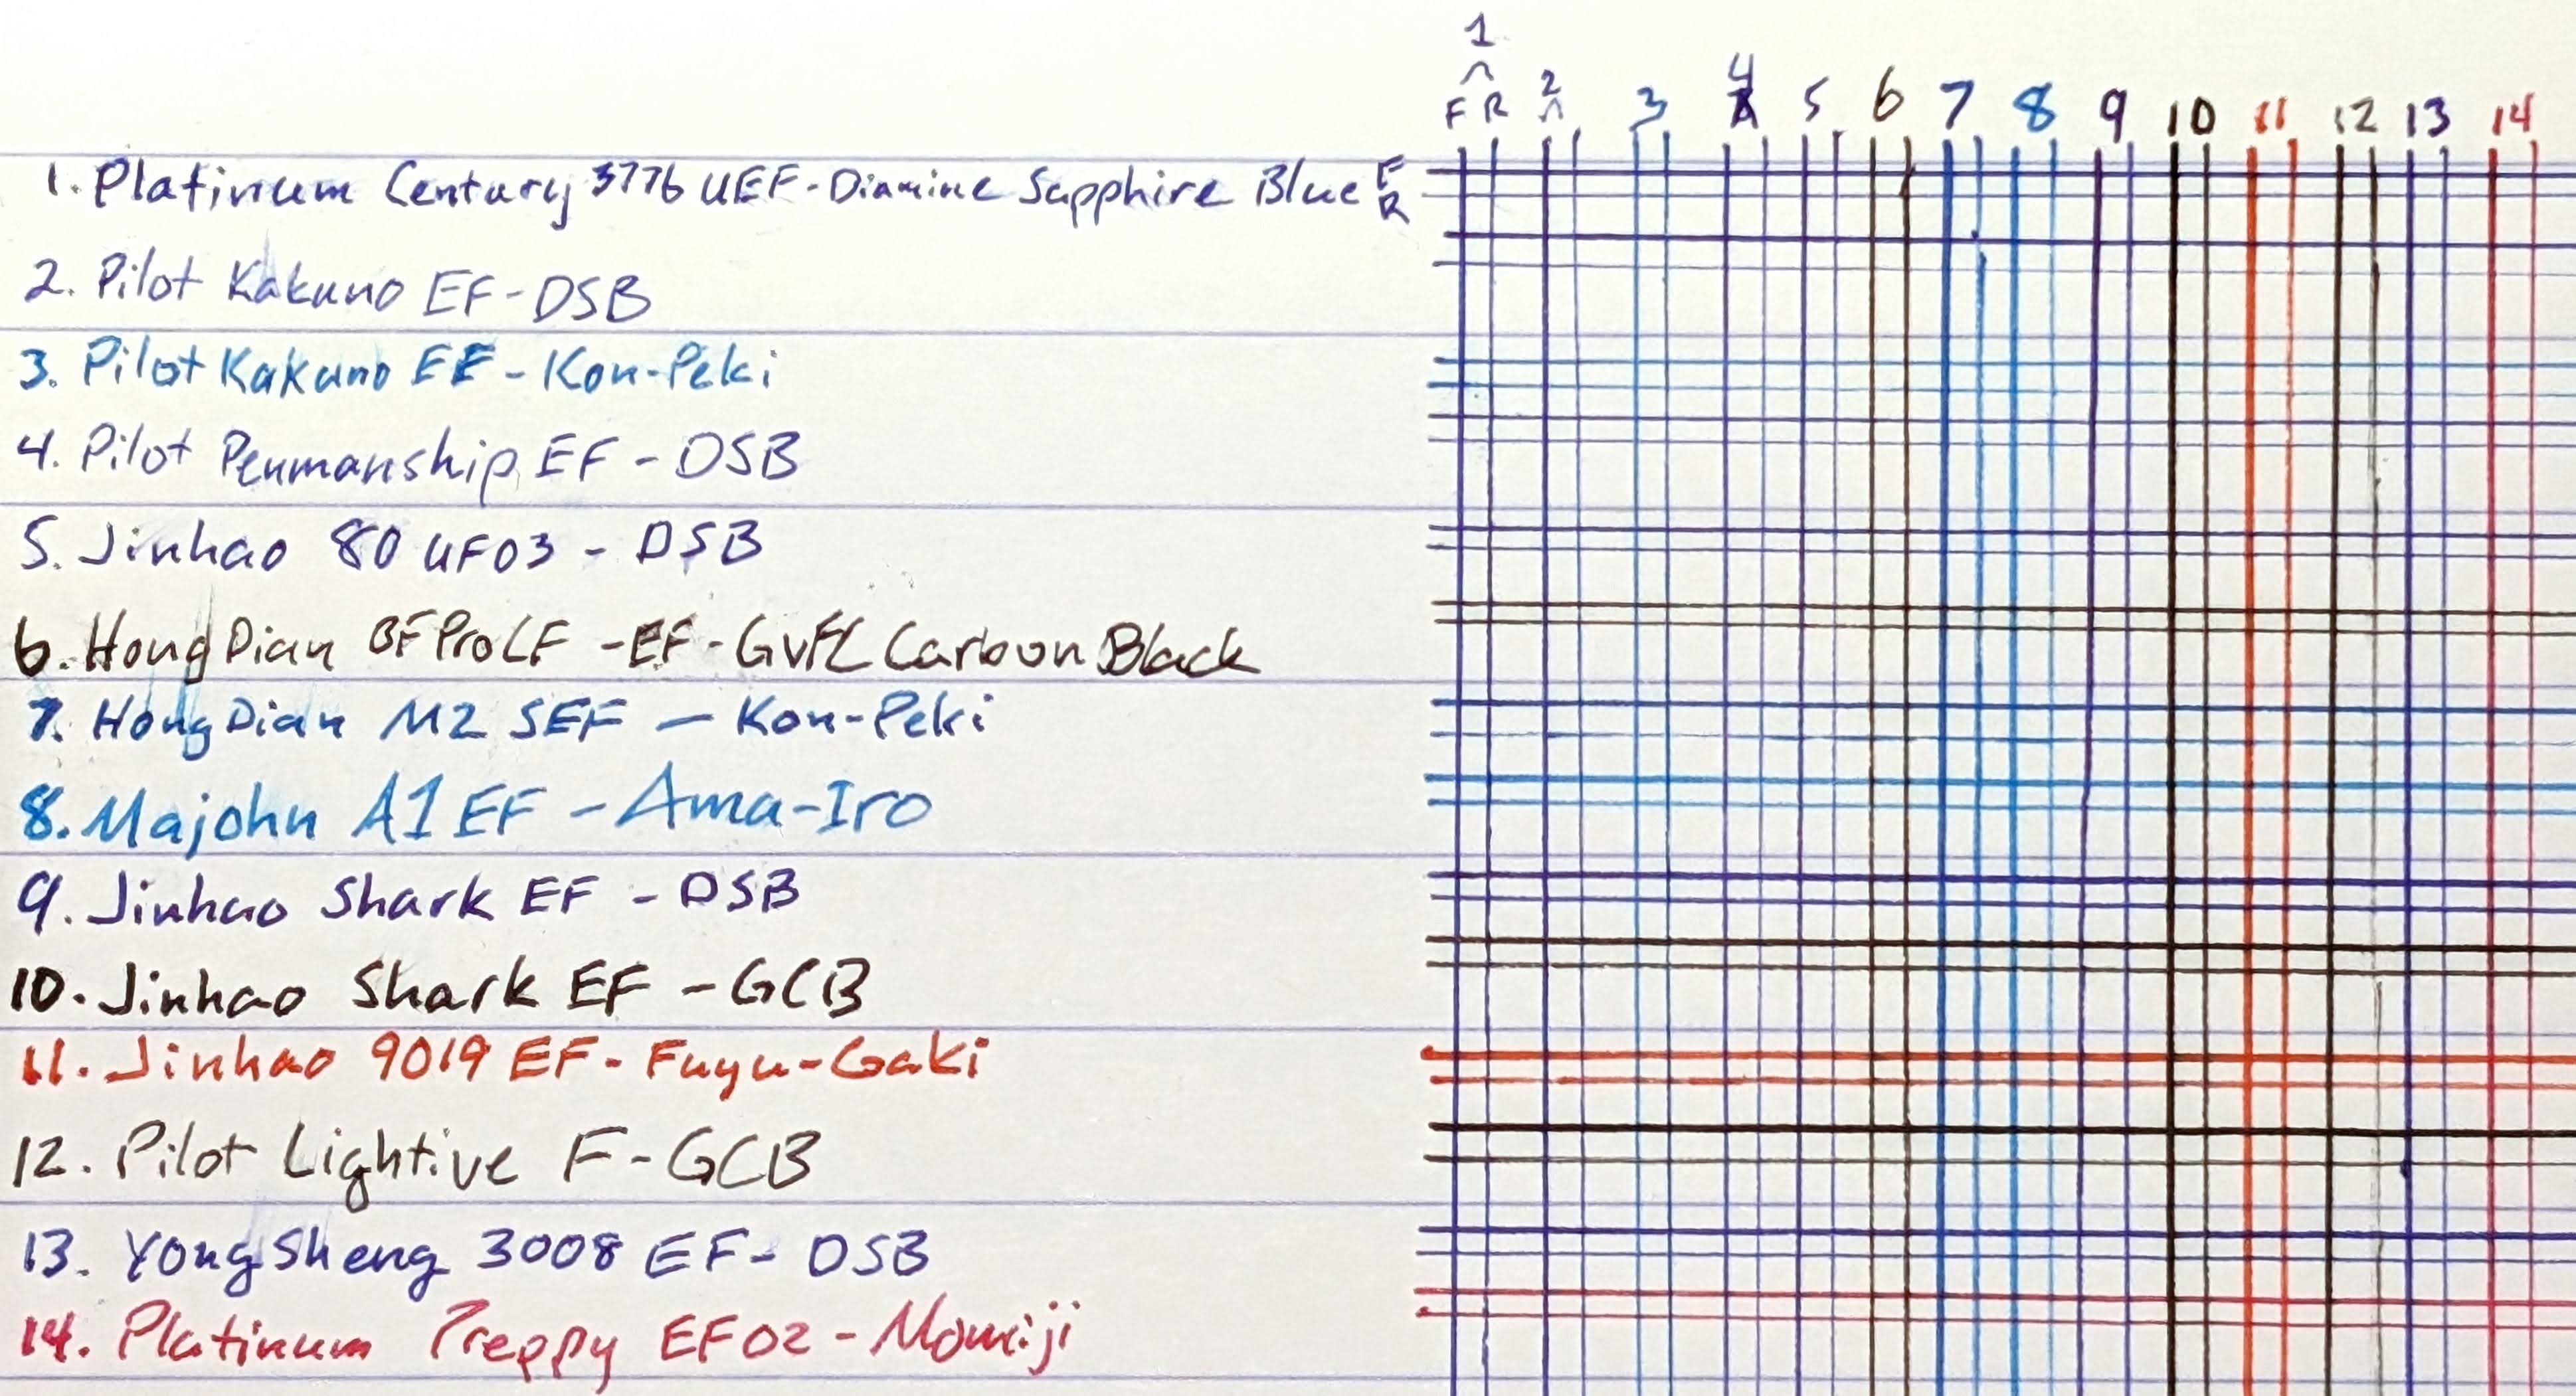 1
F R 2 3 4 5 6 7 8 9 10 11 12 13 14
1. Platinum Century 3776 UEF-Diamine Sapphire Blue F
R
2. Pilot Kakuno EF-DSB
3. Pilot Kakuno EF - Kon-Peki
4. Pilot Penmanship EF - DSB
5. Jinhao 80 UF03 - DSB
6. HongDian BFProLF - EF - GvFC Carbon Black
7. HongDian M2 SEF - Kon-Peki
8. Majohn A1 EF - Ama-Iro
9. Jinhao Shark EF - DSB
10. Jinhao Shark EF - GCB
11. Jinhao 9019 EF - Fuyu-Gaki
12. Pilot Lightive F-GCB
13. YongSheng 3008 EF - DSB
14. Platinum Preppy EF02 - Momiji